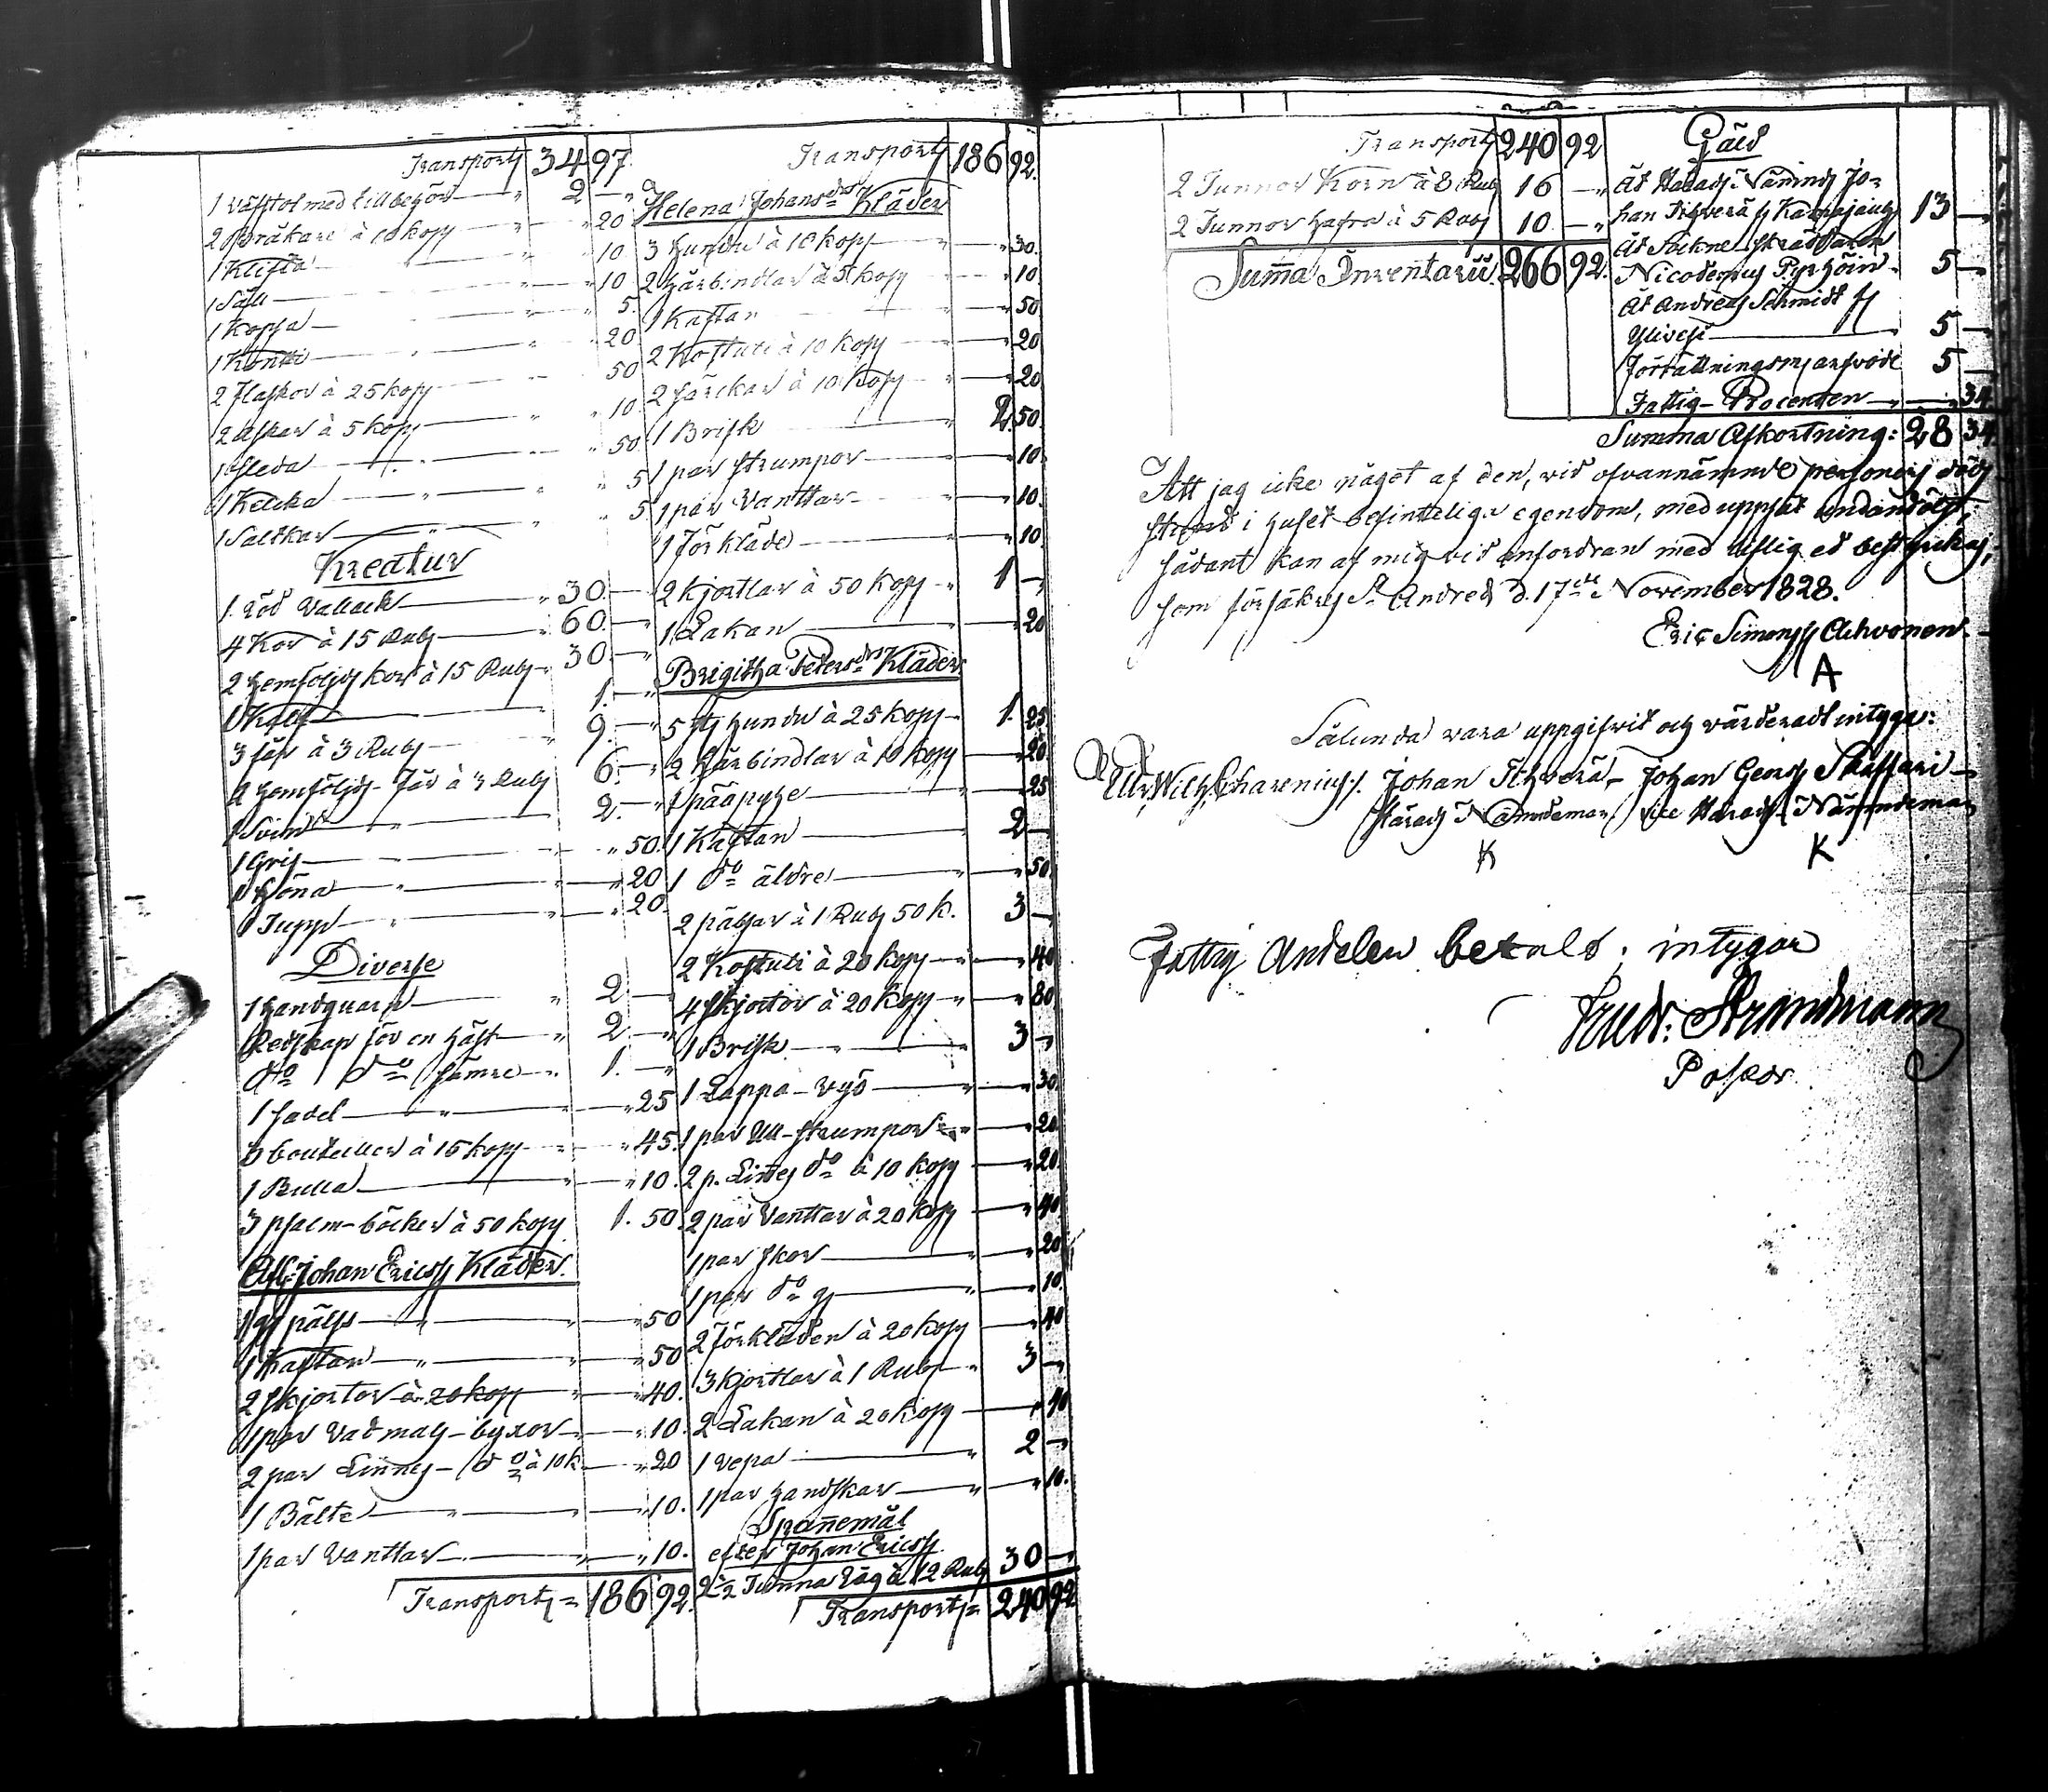 Transport 34 97.
1 väfstol med tillbehör — 2 —
2 Bråkare à 10 kop — 20
1 Klifta — 10
1 Såll — 10
1 Kopsa — 5.
1 Kontti — 20
2 Flaskor à 25 kop — 50
2 Askar à 5 kop — 10.
1 släda — 50
1 Kelcka — 5
1 Saltkar — 5
Kreatur
1 röd Vallack — 30. —
4 Kor à 15 Rub — 60. —
2 hemföljds kor à 15 Rub — 30. —
1 Kalf — 1. —
3 får à 3 Rub — 9. —
2 hemföljds - Får à 3 Rub 6. —
1 Svin — 2. —
1 Gris — 50.
1 Höna — 20
1 Tupp — 20.
Diverse
1 handquarn — 2. —
Redskap för en häst — 2. —
dto do sämre — 1. —
1 sadel — 25
3 bouteiller à 15 kop — 45.
1 Bulla — 10.
3 psalm-böcker à 50 kop 1. 50.
Afl: Johan Ericss Kläder.
1 gl pälss — 50
1 Kaftan — 50
2 skjortor à 20 kop — 40.
1 par Vadmals-byxor — 10.
2 par Linnes- do à 10 k — 20
1 Bälte — 10.
1 par Vanttar — 10.
Transport = 186 92.
Transport 186 92.
Helena Johansdr Kläder
3 hundu à 10 kop — 30.
2 hårbindlar à 5 kop — 10.
1 Kaftan — 50
2 Kostuli à 10 kop — 20
2 särckar à 10 kop — 20
1 Brisk — 2. 50.
1 par strumpor — 10.
1 par Vanttar — 10.
1 Förkläde — 10.
2 kjortlar à 50 kop 1 —
1 Lakan — 20
Brigitha Petersdr Kläder
5 st hundu à 25 kop — 1. 25.
2 Hårbindlar à 10 kop — 20
1 pääpyhe — 25
1 Kaftan — 2 —
1 do äldre — 50.
2 pälsar à 1 Rub 50 k. 3 —
2 Kostuli à 20 kop — 40
4 skjortor à 20 kop — 80.
1 Brisk — 3 —
1 Lappa-vyö — 30
1 par Ull-strumpor — 20
2 p. Linnes do à 10 kop — 20.
2 par Vanttar à 20 kop — 40
1 par skor — 20
1 par do g — 10.
2 Förkläden à 20 kop — 40
3 Kjortlar à 1 Rub — 3 —
2 Lakan à 20 kop — 40
1 vepa — 2 —
1 par handskar — 10.
Spannemål
efter Johan Ericss
2 1/2 Tunna råg à 12 Rub 30 —
Transport = 240 92
Transport 240 92
2 Tunnor Korn à 8 Rub 16 —
2 Tunnor hafra à 5 Rub 10. —
Summa Inventarii. 266 92.
Gäld
Åt Härads-Nämnds Jo-
han Ihverä fr Kamajauls 13 —
Åt Sockne-skräddaren
Nicodemus Pyrhöin 5 —
Åt Andreas Schmidt fr
Ylivesi — 5 —
Förrättningsm arfvode 5 —
Fattig-Procenten — 34.
Summa Afkortning: 28 34
Att jag icke något af den, vid ofvannämnde personers död
stund i huset befinteliga egendom, med uppsåt undandölgt,
sådant kan af mig vid anfordran med liflig ed bestyrkas,
som försäkras St Andreæ d. 17de November 1828.
Eric Simonss Ahvonen
A
Sålunda vara uppgifvit och värderadt intyga:
Wilh: Charenius. Johan Ihverä Johan Georg Skaffari
Härads Nämndeman vice Härads-Nämndeman
K K
Fattig Andelen betald; intygar
Fredr: Strandmann
Pastor